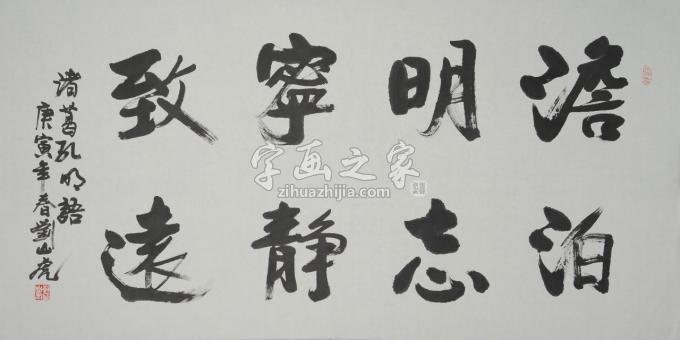 澹泊
明志
寧静
致遠
诸葛孔明語
庚寅年春劉山虎
字画之家
zihuazhijia.com